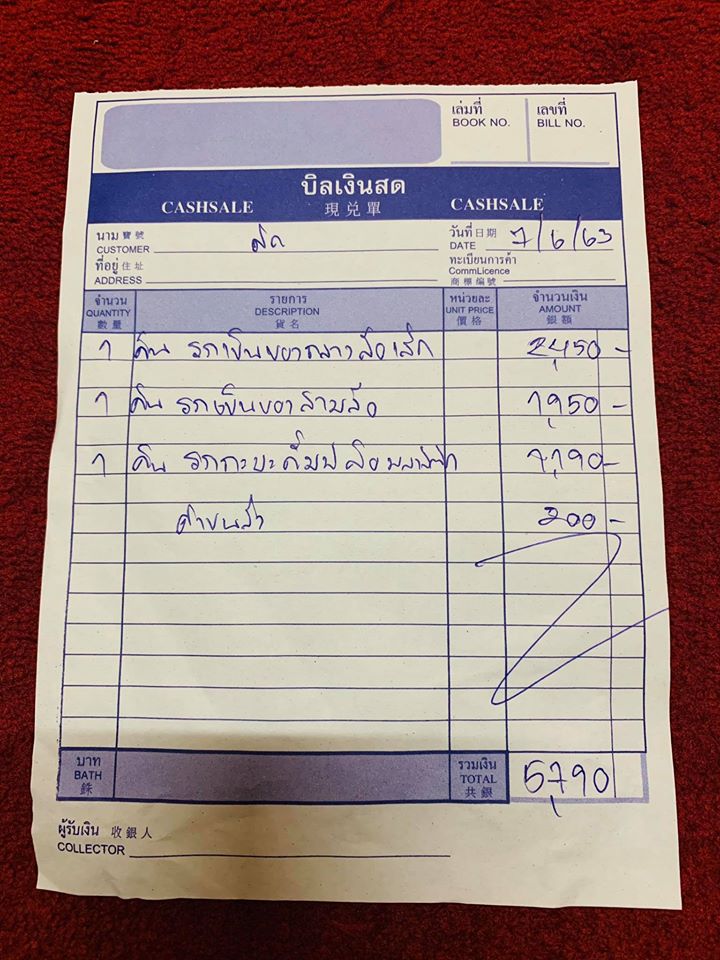 เล่มที่ เลขที่
BOOK NO. BILL NO.
บิลเงินสด
CASHSALE 現兌單 CASHSALE
นาม 寶號 วันที่ 日期
CUSTOMER สด DATE 7/6/63
ที่อยู่ 住址 ทะเบียนการค้า
ADDRESS CommLicence
商標編號
จำนวน รายการ หน่วยละ จำนวนเงิน
QUANTITY DESCRIPTION UNIT PRICE AMOUNT
數量 貨名 價格 銀額
1 คัน รถเข็นขยะกลางล้อเล็ก 2,450 -
1 คัน รถเข็นขยะสามล้อ 1,950 -
1 คัน รถกะบะดั๊มป์ล้อ 1,190 -
ค่าขนส่ง 200 -
บาท รวมเงิน
BATH TOTAL 5,790
銖 共銀
ผู้รับเงิน 收銀人
COLLECTOR